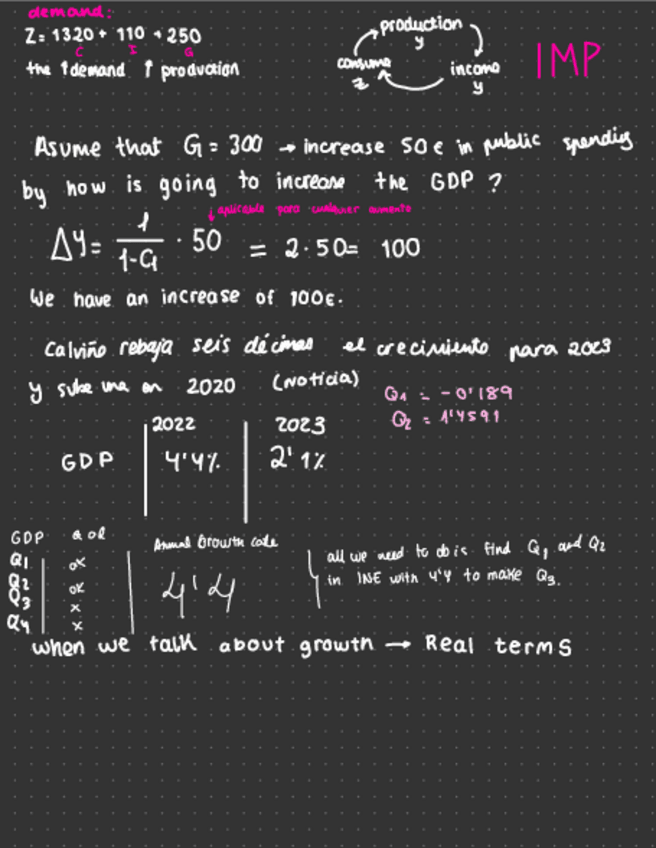 demand:
Z = 1320 + 110 + 250
C I G
the ↑demand ↑ production
production
y
consume
z
income
y
IMP
Asume that G = 300 → increase 50 € in public spending
by how is going to increase the GDP ?
↓ aplicable para cualquier aumento
Δy = 1/1-C1 · 50 = 2 · 50 = 100
We have an increase of 100€.
Calviño rebaja seis décimas el crecimiento para 2023
y sube una en 2020 (noticia)
Q1 = -0'189
Q2 = 1'4591
2022 2023
GDP 4'4% 2'1%
GDP
Annual Growth
Q1 OK
Q2 OK
Q3 x
Q4 x
4'4
all we need to do is find Q1 and Q2
in INE with 4'4 to make Q3.
when we talk about growth → Real terms